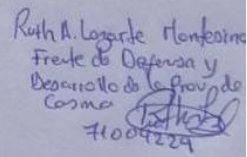 Ruth A. Lozarte Montesino
Frente de Defensa y
Desarrollo de la Prov. de
Casma
71004224